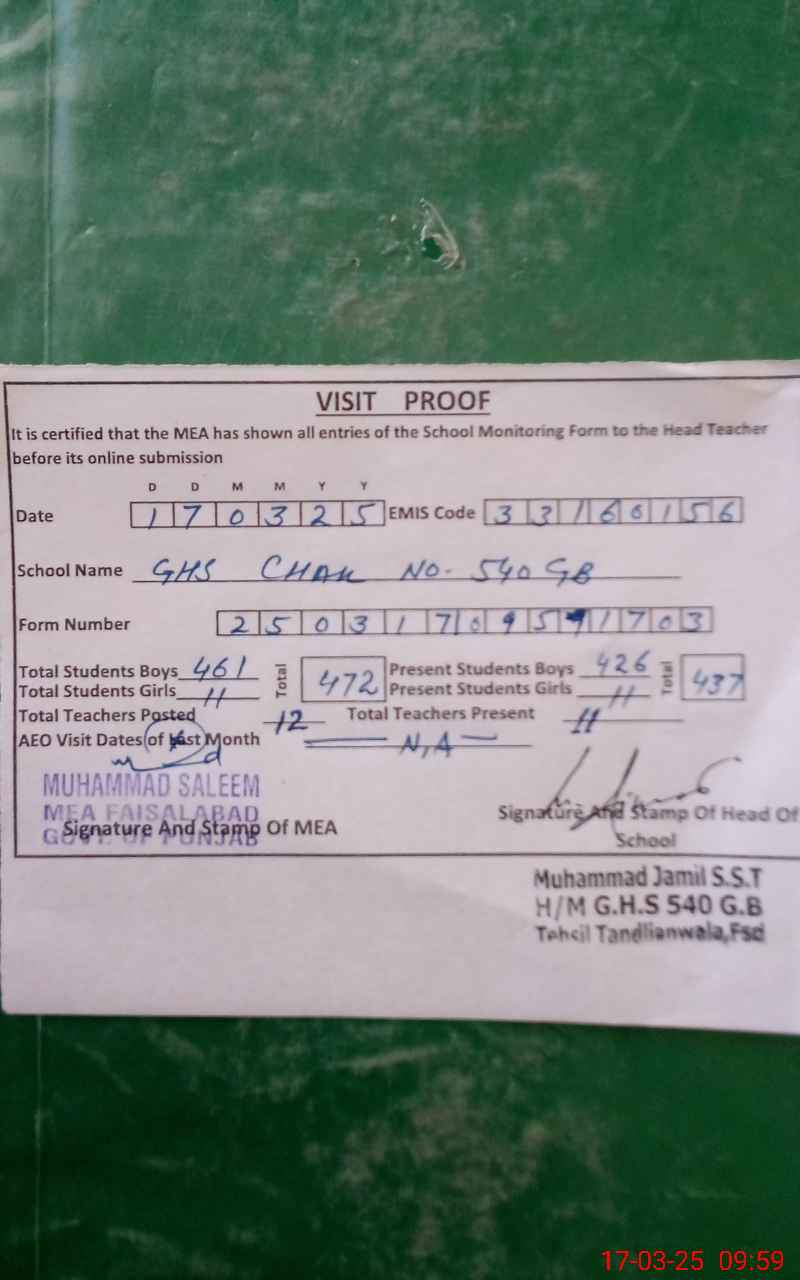 VISIT PROOF
It is certified that the MEA has shown all entries of the School Monitoring Form to the Head Teacher
before its online submission
D D M M Y Y
Date 170325 EMIS Code 33160156
School Name GHS CHAK NO. 540 GB
Form Number
Total Students Boys 461 Total 472 Present Students Boys 426 Total 437
Total Students Girls 11 Present Students Girls 11
Total Teachers Posted 12 Total Teachers Present 11
AEO Visit Dates of last Month N,A
MUHAMMAD SALEEM
MEA FAISALABAD
GOVT. OF PUNJAB
Signature And Stamp Of MEA
Signature And Stamp Of Head Of
School
Muhammad Jamil S.S.T
H/M G.H.S 540 G.B
Tehsil Tandlianwala,Fsd
17-03-25 09:59